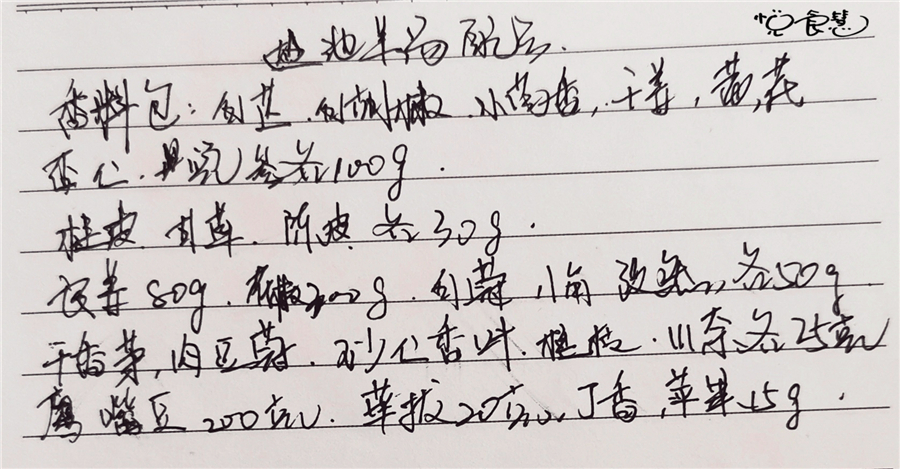 悦食慧
羊汤配方.
香料包：白芷.白胡椒.小茴香,干姜,黄芪
党参各100g.
桂皮.甘草.陈皮各30g.
良姜80g.花椒200g.白蔻.八角各50g
干香茅,肉豆蔻.砂仁香叶.桂枝.川各25克
鹰嘴豆200克.荜拨20克.丁香,草果15g.